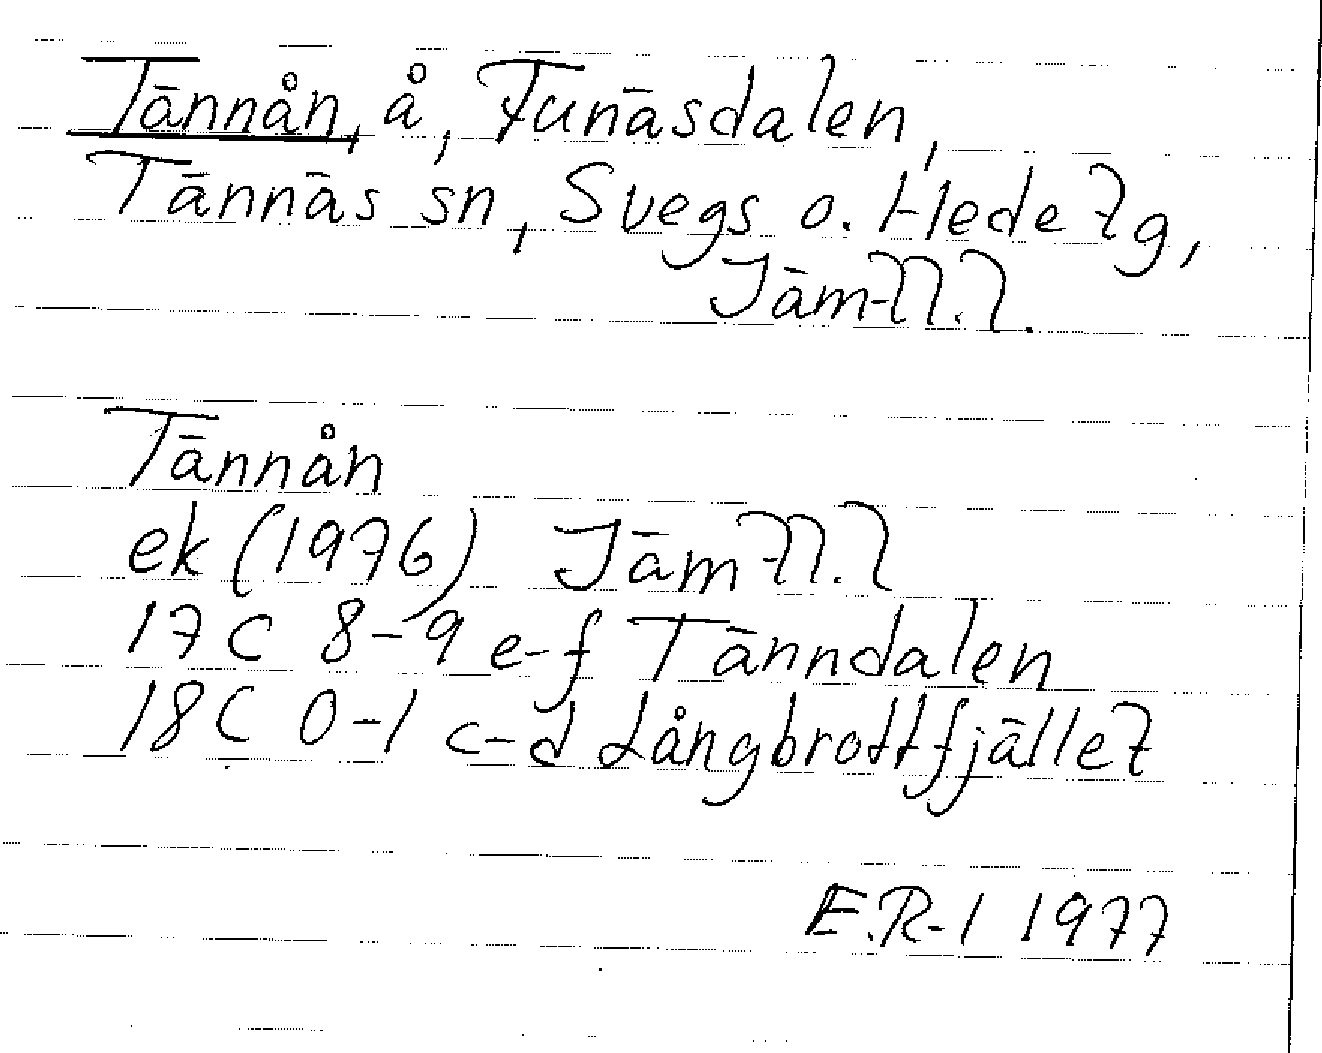 Tännån, å, Funäsdalen,
Tännäs sn, Svegs o. Hede tg,
Jämtl.l.
Tännån
ek (1976) Jämtl.l
17C 8-9 e-f Tänndalen
18C 0-1 c-d Långbrottfjället
E.R-l 1977